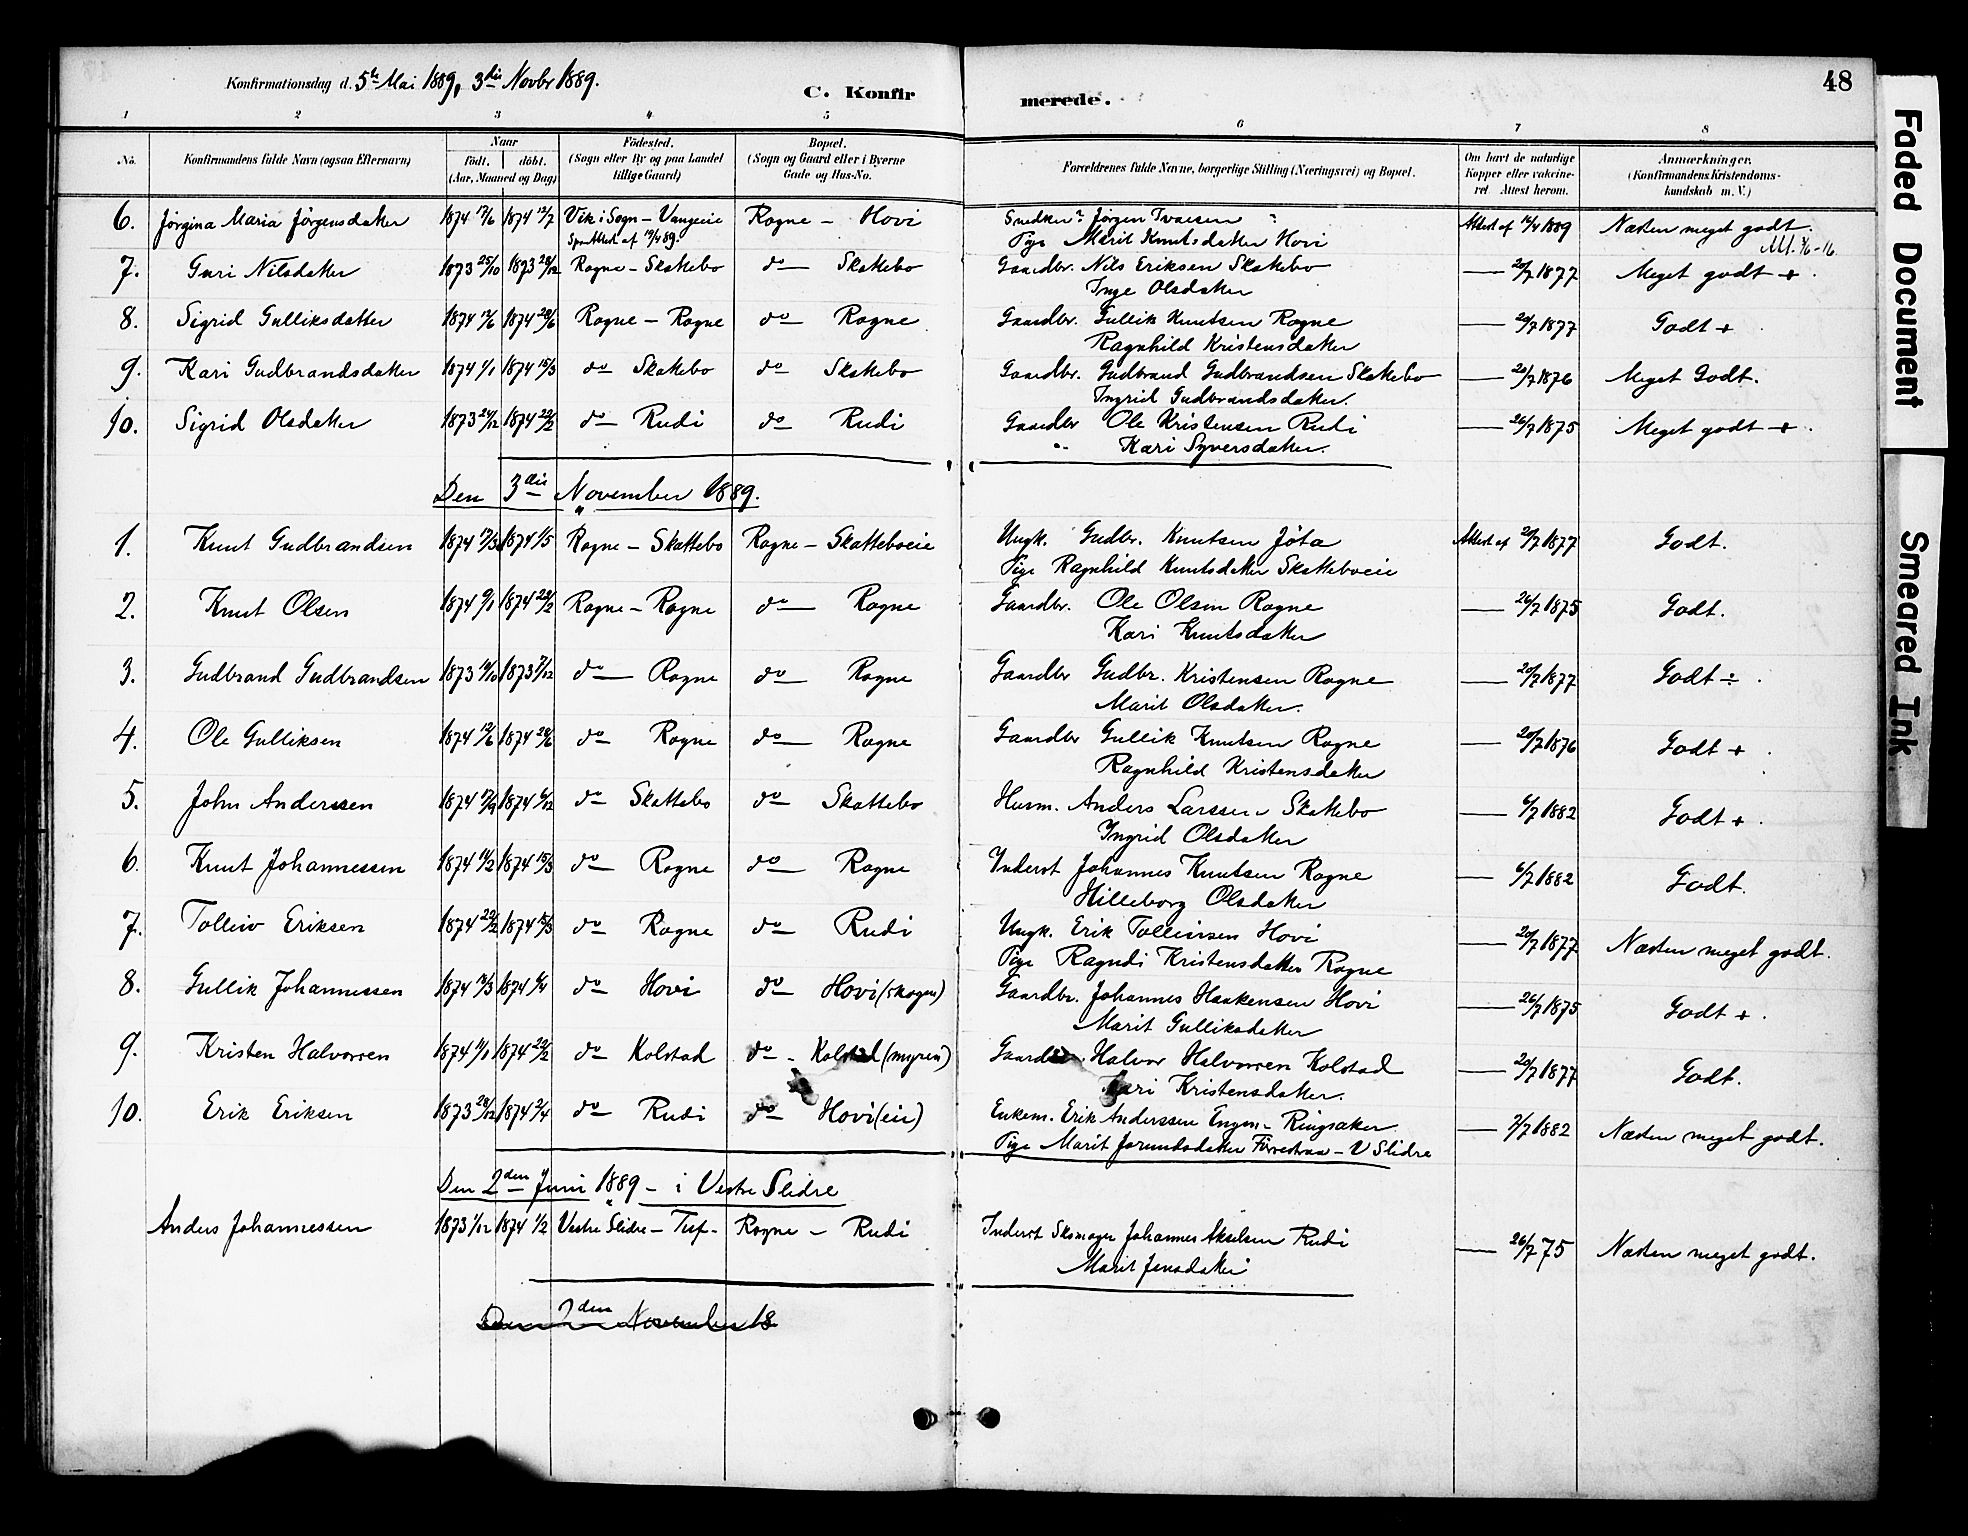 Konfirmationsdag d. 5te Mai 1889, 3die Novbr 1889.
C. Konfirmerede.
48
1 2 3 4 5 6 7 8
No.
Konfirmandens fulde Navn (ogsaa Efternavn)
Naar
født. døbt.
(Aar, Maaned og Dag)
Fødested.
(Sogn eller By og paa Landet
tillige Gaard)
Bopæl.
(Sogn og Gaard eller i Byerne
Gade og Hus-No.
Forældrenes fulde Navne, borgerlige Stilling (Næringsvei) og Bopæl.
Om havt de naturlige
Kopper eller vaccine-
ret Attest herom.
Anmærkninger.
(Konfirmandens Kristendoms-
kundskab m. V.)
6. Jørgina Maria Jörgensdatter 1874 17/6 1874 12/7 Vik i Sogn - Vangeeie Rogne - Hovi Snedker? Jørgen Tvaesen ? Attest af 12/4 1889 Næsten meget godt.
Pige Marit Knutsdatter Hovi
7. Guri Nilsdatter 1873 25/10 1873 28/12 Rogne - Skattebo do Skattebo Gaardbr. Nils Eriksen Skattebo 20/7 1877 Meget godt +
Inge Olsdatter
8. Sigrid Gulliksdatter 1874 12/6 1874 28/6 Rogne - Rogne do Rogne Gaardbr. Gullik Knutsen Rogne 20/7 1877 Godt +
Ragnhild Kristensdatter
9. Kari Gudbrandsdatter 1874 1/1 1874 15/3 do Skattebo do Skattebo Gaardbr. Gudbrand Gudbrandsen Skattebo 20/7 1876 Meget Godt.
Ingrid Gudbrandsdatter.
10. Sigrid Olsdatter 1873 24/12 1874 22/2 do Rudi do Rudi Gaardbr Ole Kristensen Rudi 26/7 1875 Meget godt +
Kari Syversdatter.
Den 3die November 1889.
1. Knut Gudbrandsen 1874 17/3 1874 1/5 Rogne - Skattebo Rogne - Skatteboeie Ungk. Gudbr. Knutsen Jöta Attest af 20/7 1877 Godt.
Pige Ragnhild Knutsdatter Skatteboeie
2. Knut Olsen 1874 9/1 1874 22/2 Rogne - Rogne do Rogne Gaardbr. Ole Olsen Rogne 26/7 1875 Godt.
Kari Knutsdatter
3. Gudbrand Gudbrandsen 1873 14/10 1873 7/12 do Rogne do Rogne Gaardbr Gudbr. Kristensen Rogne 20/7 1877 Godt ÷
Marit Olsdatter.
4. Ole Gulliksen 1874 12/6 1874 28/6 do Rogne do Rogne Gaardbr Gullik Knutsen Rogne 20/7 1876 Godt +
Ragnhild Kristensdatter
5. John Anderssen 1874 17/9 1874 6/12 do Skattebo do Skattebo Husm. Anders Larssen Skattebo 6/7 1882 Godt +
Ingrid Olsdatter
6. Knut Johannessen 1874 11/2 1874 15/3 do Rogne do Rogne Inderst Johannes Knutsen Rogne 6/7 1882 Godt.
Hilleborg Olsdatter
7. Tolleiv Eriksen 1874 22/2 1874 15/3 do Rogne do Rudi Ungk. Erik Tolleivsen Hovi 20/7 1877 Næsten meget godt.
Pige Ragndi Kristensdatter Rogne
8. Gullik Johannessen 1874 14/3 1874 6/4 do Hovi do Hovi (skogen) Gaardbr. Johannes Haakensen Hovi 26/7 1875 Godt +
Marit Gulliksdatter
9. Kristen Halvorsen 1874 11/1 1874 22/2 do Kolstad do - Kolstad (myren) Halvor Halvorsen Kolstad 20/7 1877 Godt.
Kari Kristensdatter.
10. Erik Eriksen 1873 28/12 1874 2/4 do Rudi do Hovi (eie) Enkem. Erik Anderssen Engen - Ringsaker 7/7 1882 Næsten meget godt.
Pige Marit Jorundsdatter - V Slidre
Den 2den Juni 1889 - i Vestre Slidre
Anders Johannessen 1873 1/12 1874 1/2 Vestre Slidre - Rogne - Rudi Inderst Skomager Johannes Akselsen Rudi 26/7 75 Næsten meget godt.
Marit Jensdatter
Den 2den November 18
Faded Document
Smeared Ink